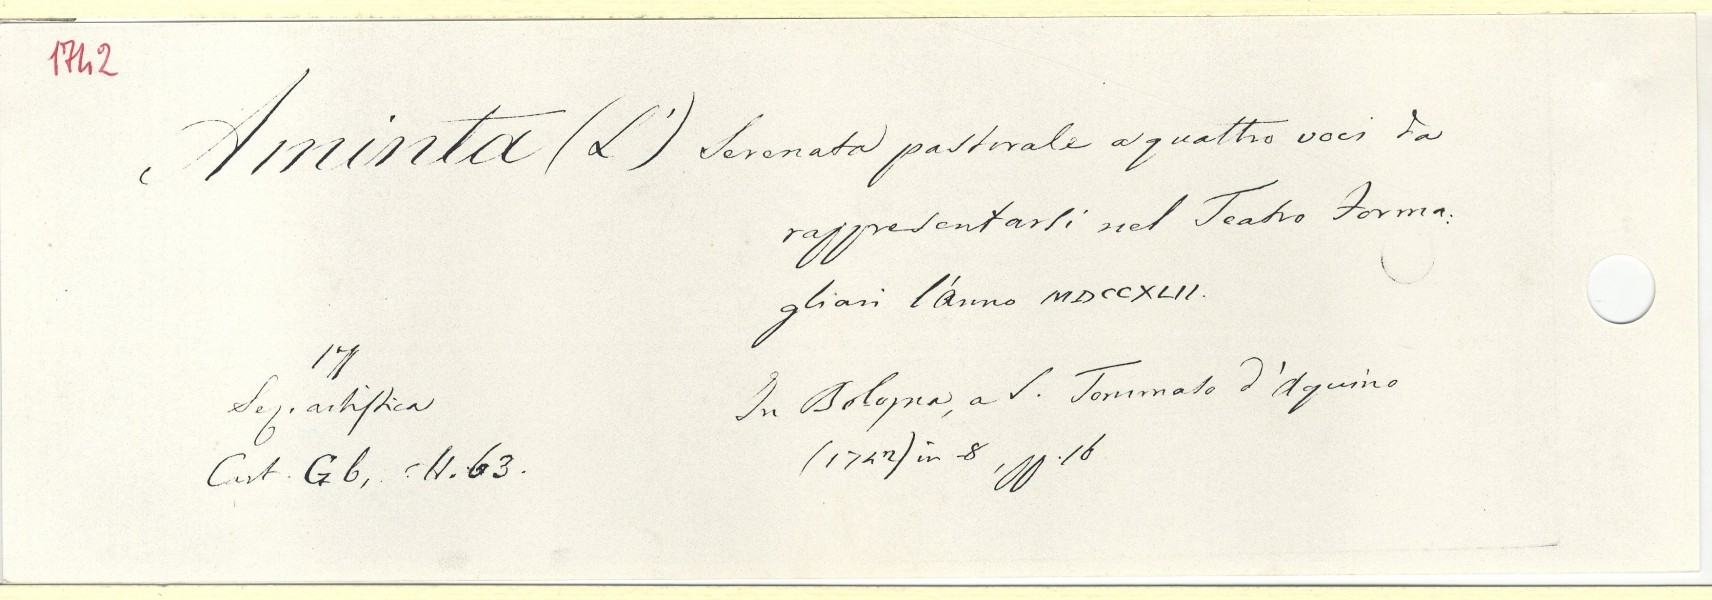 1742
Aminta (L') Serenata pastorale a quattro voci da
rappresentarsi nel Teatro Forma:
gliari l'Anno MDCCXLII.
17
Sez. artistica
In Bologna, a S. Tommaso d'Aquino
Cart. Gb, N. 63.
(1742) in 8, pp. 16